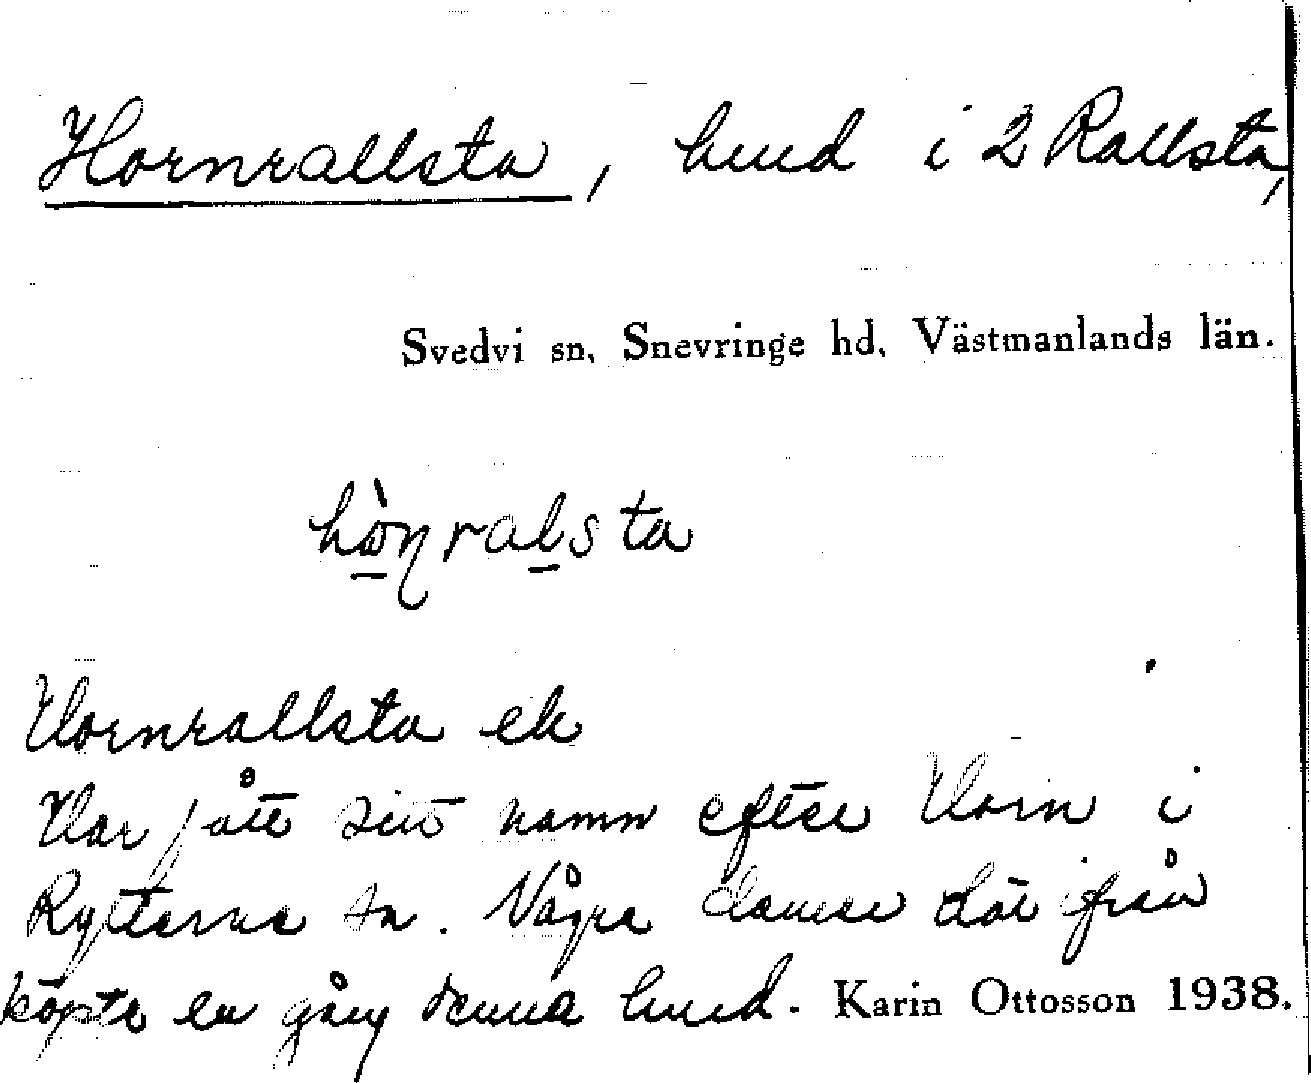 Hornrallsta, hmd i 2 Rallsta,
Svedvi sn, Snevringe hd, Västmanlands län.
hòŋralsta
Hornrallsta ek
Har fått sitt namn efter Horn i
Ryttarne sn. Några damer där ifrån
köpte en gång denna hmd. Karin Ottosson 1938.